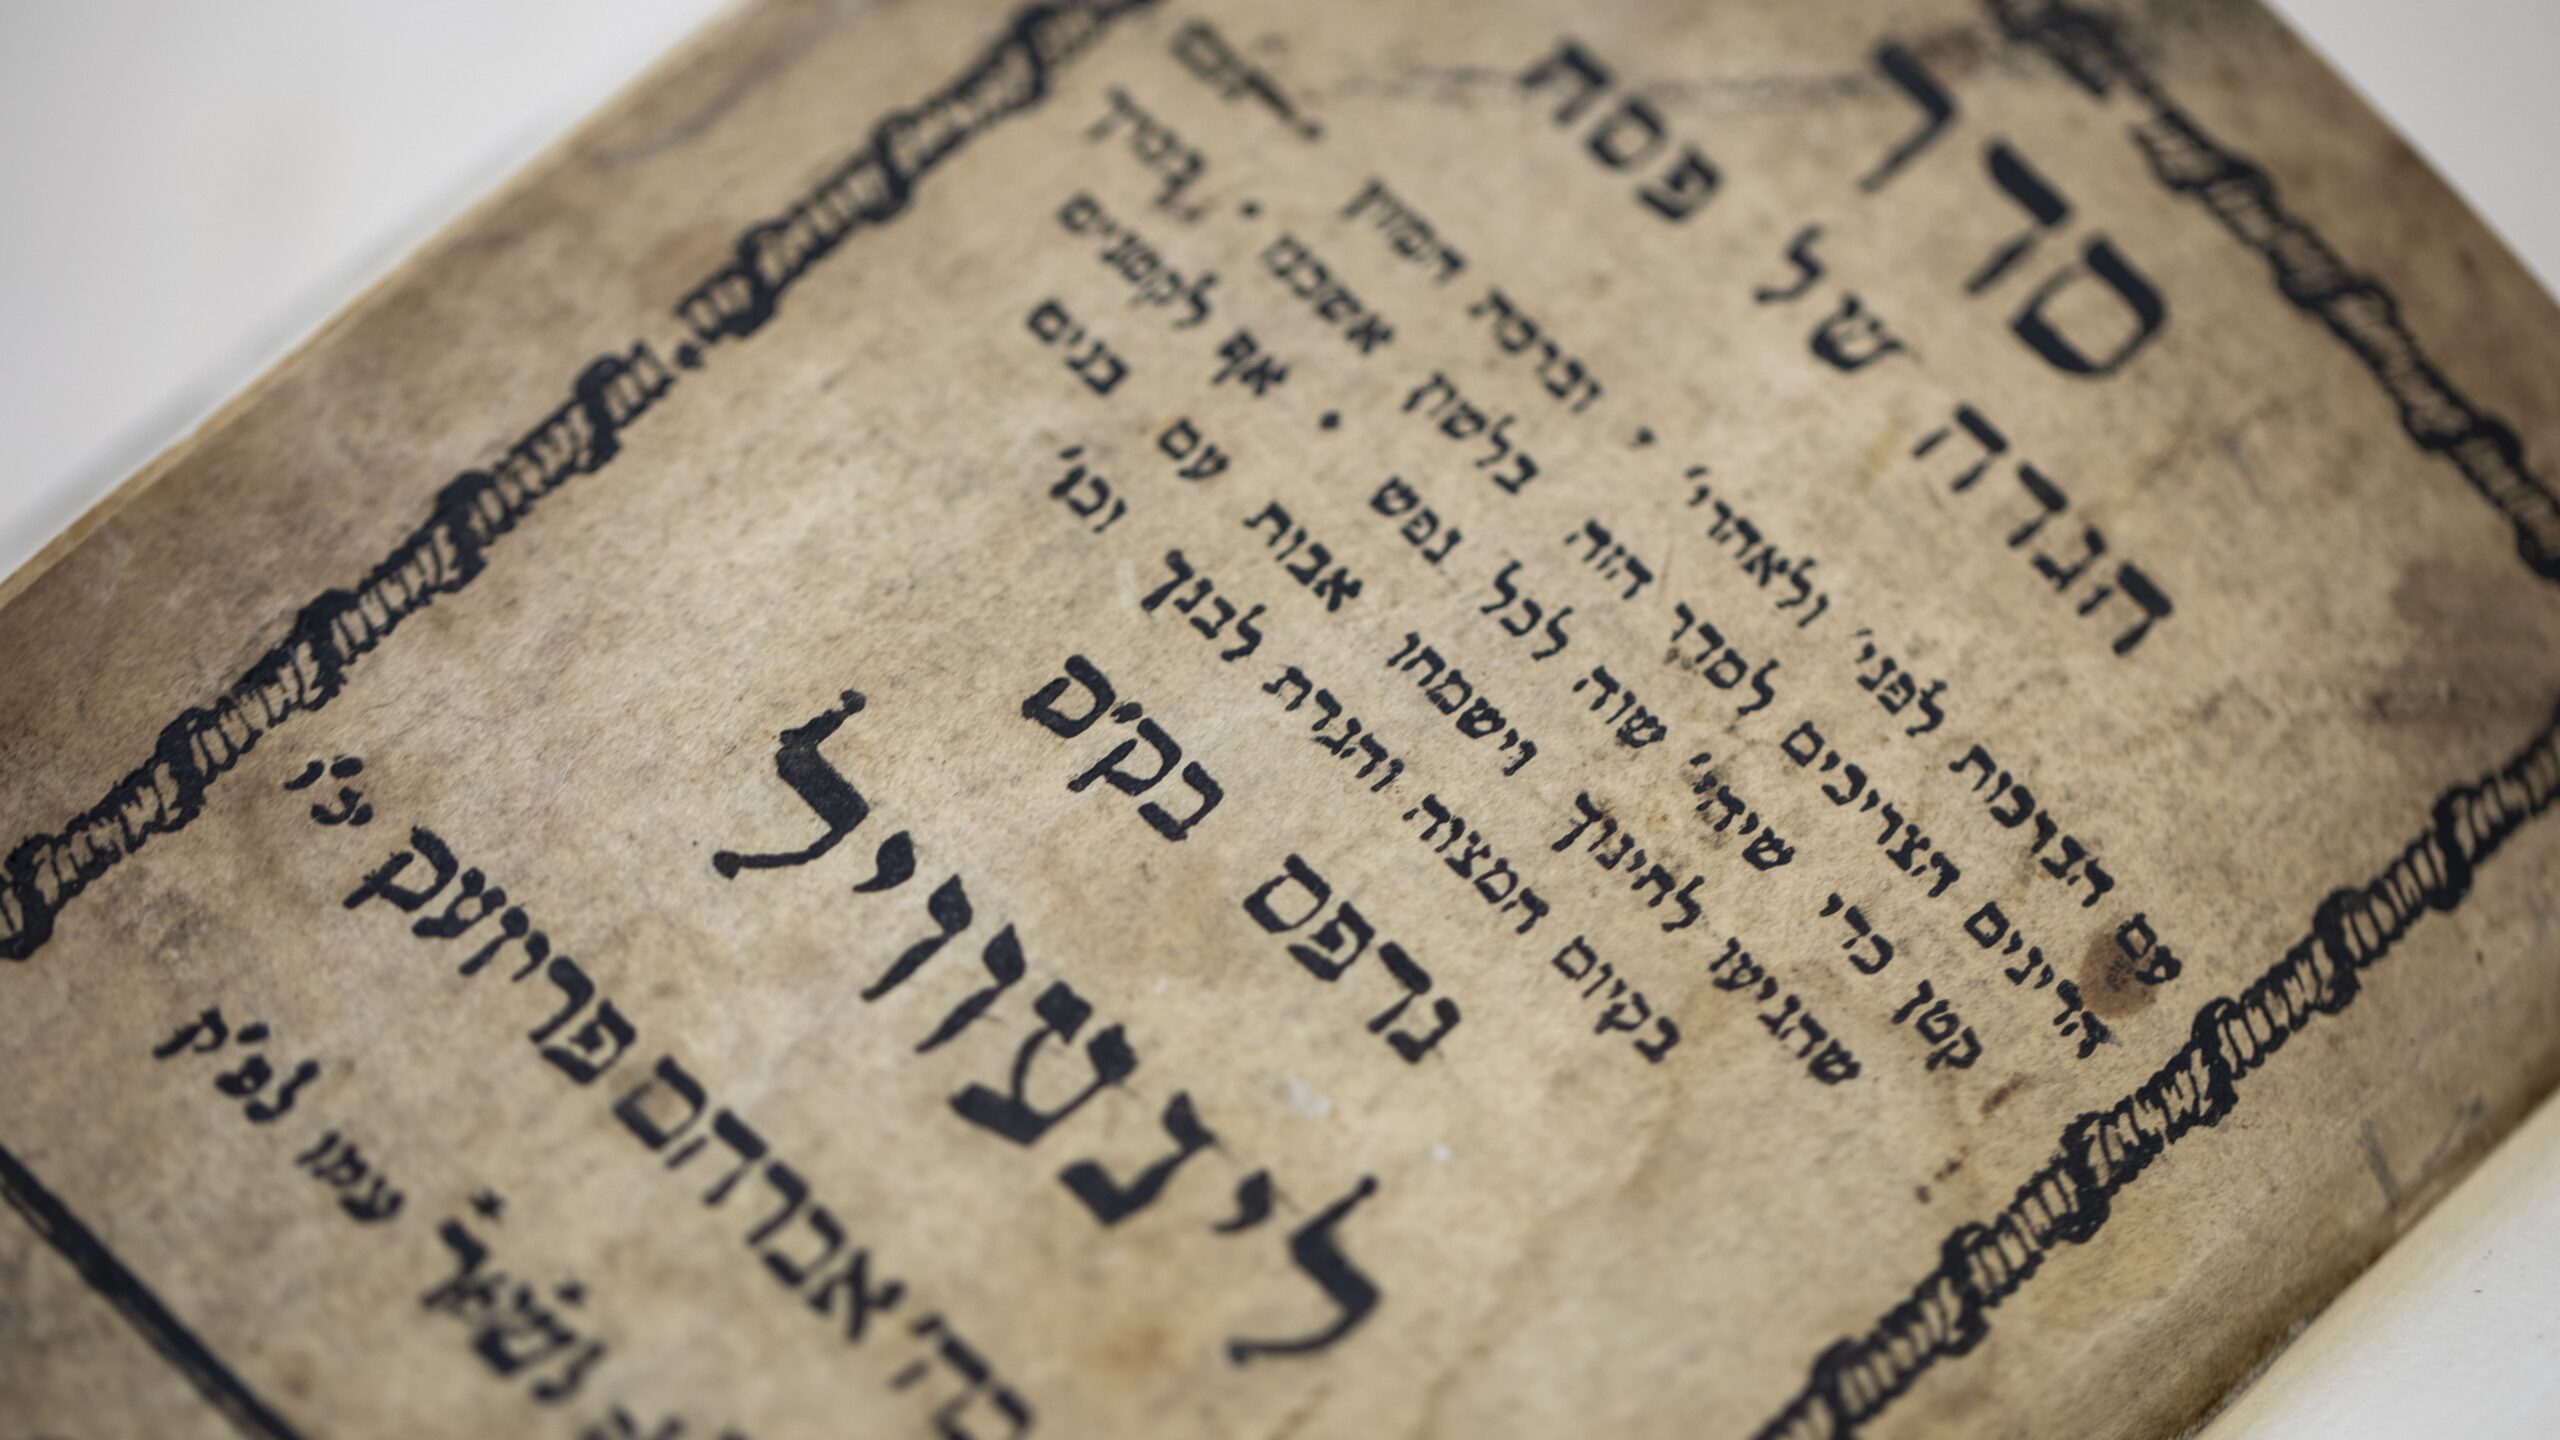 סדר
הגדה של פסח
עם הברכות לפני' ולאחרי' , וברכת המזון
הדינים הצריכים לסדר הזה בלשון אשכנז .
קטן כדי שיהי' שוה לכל נפש . אף לקטנים
שהגיעו לחינוך וישמחו אבות עם בנים
בקיום המצוה והגדת לבנך וכו'
נדפס בק"ק
לינעוויל
אברהם פריזעק יצ"ו
עמו לפ"ק